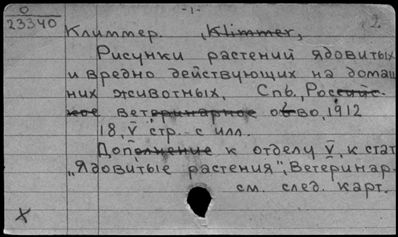 О
23340
-1-
2
Климмер. Klimmer,
Рисунки растений ядовитых
и вредно действующих на домаш
них животных. Спб., Российс-
кое ветеринарное о-во, 1912
18, V стр. с илл.
Дополнение к отделу V, к стат
"Ядовитые растения", Ветеринар-
см. след. карт.
X